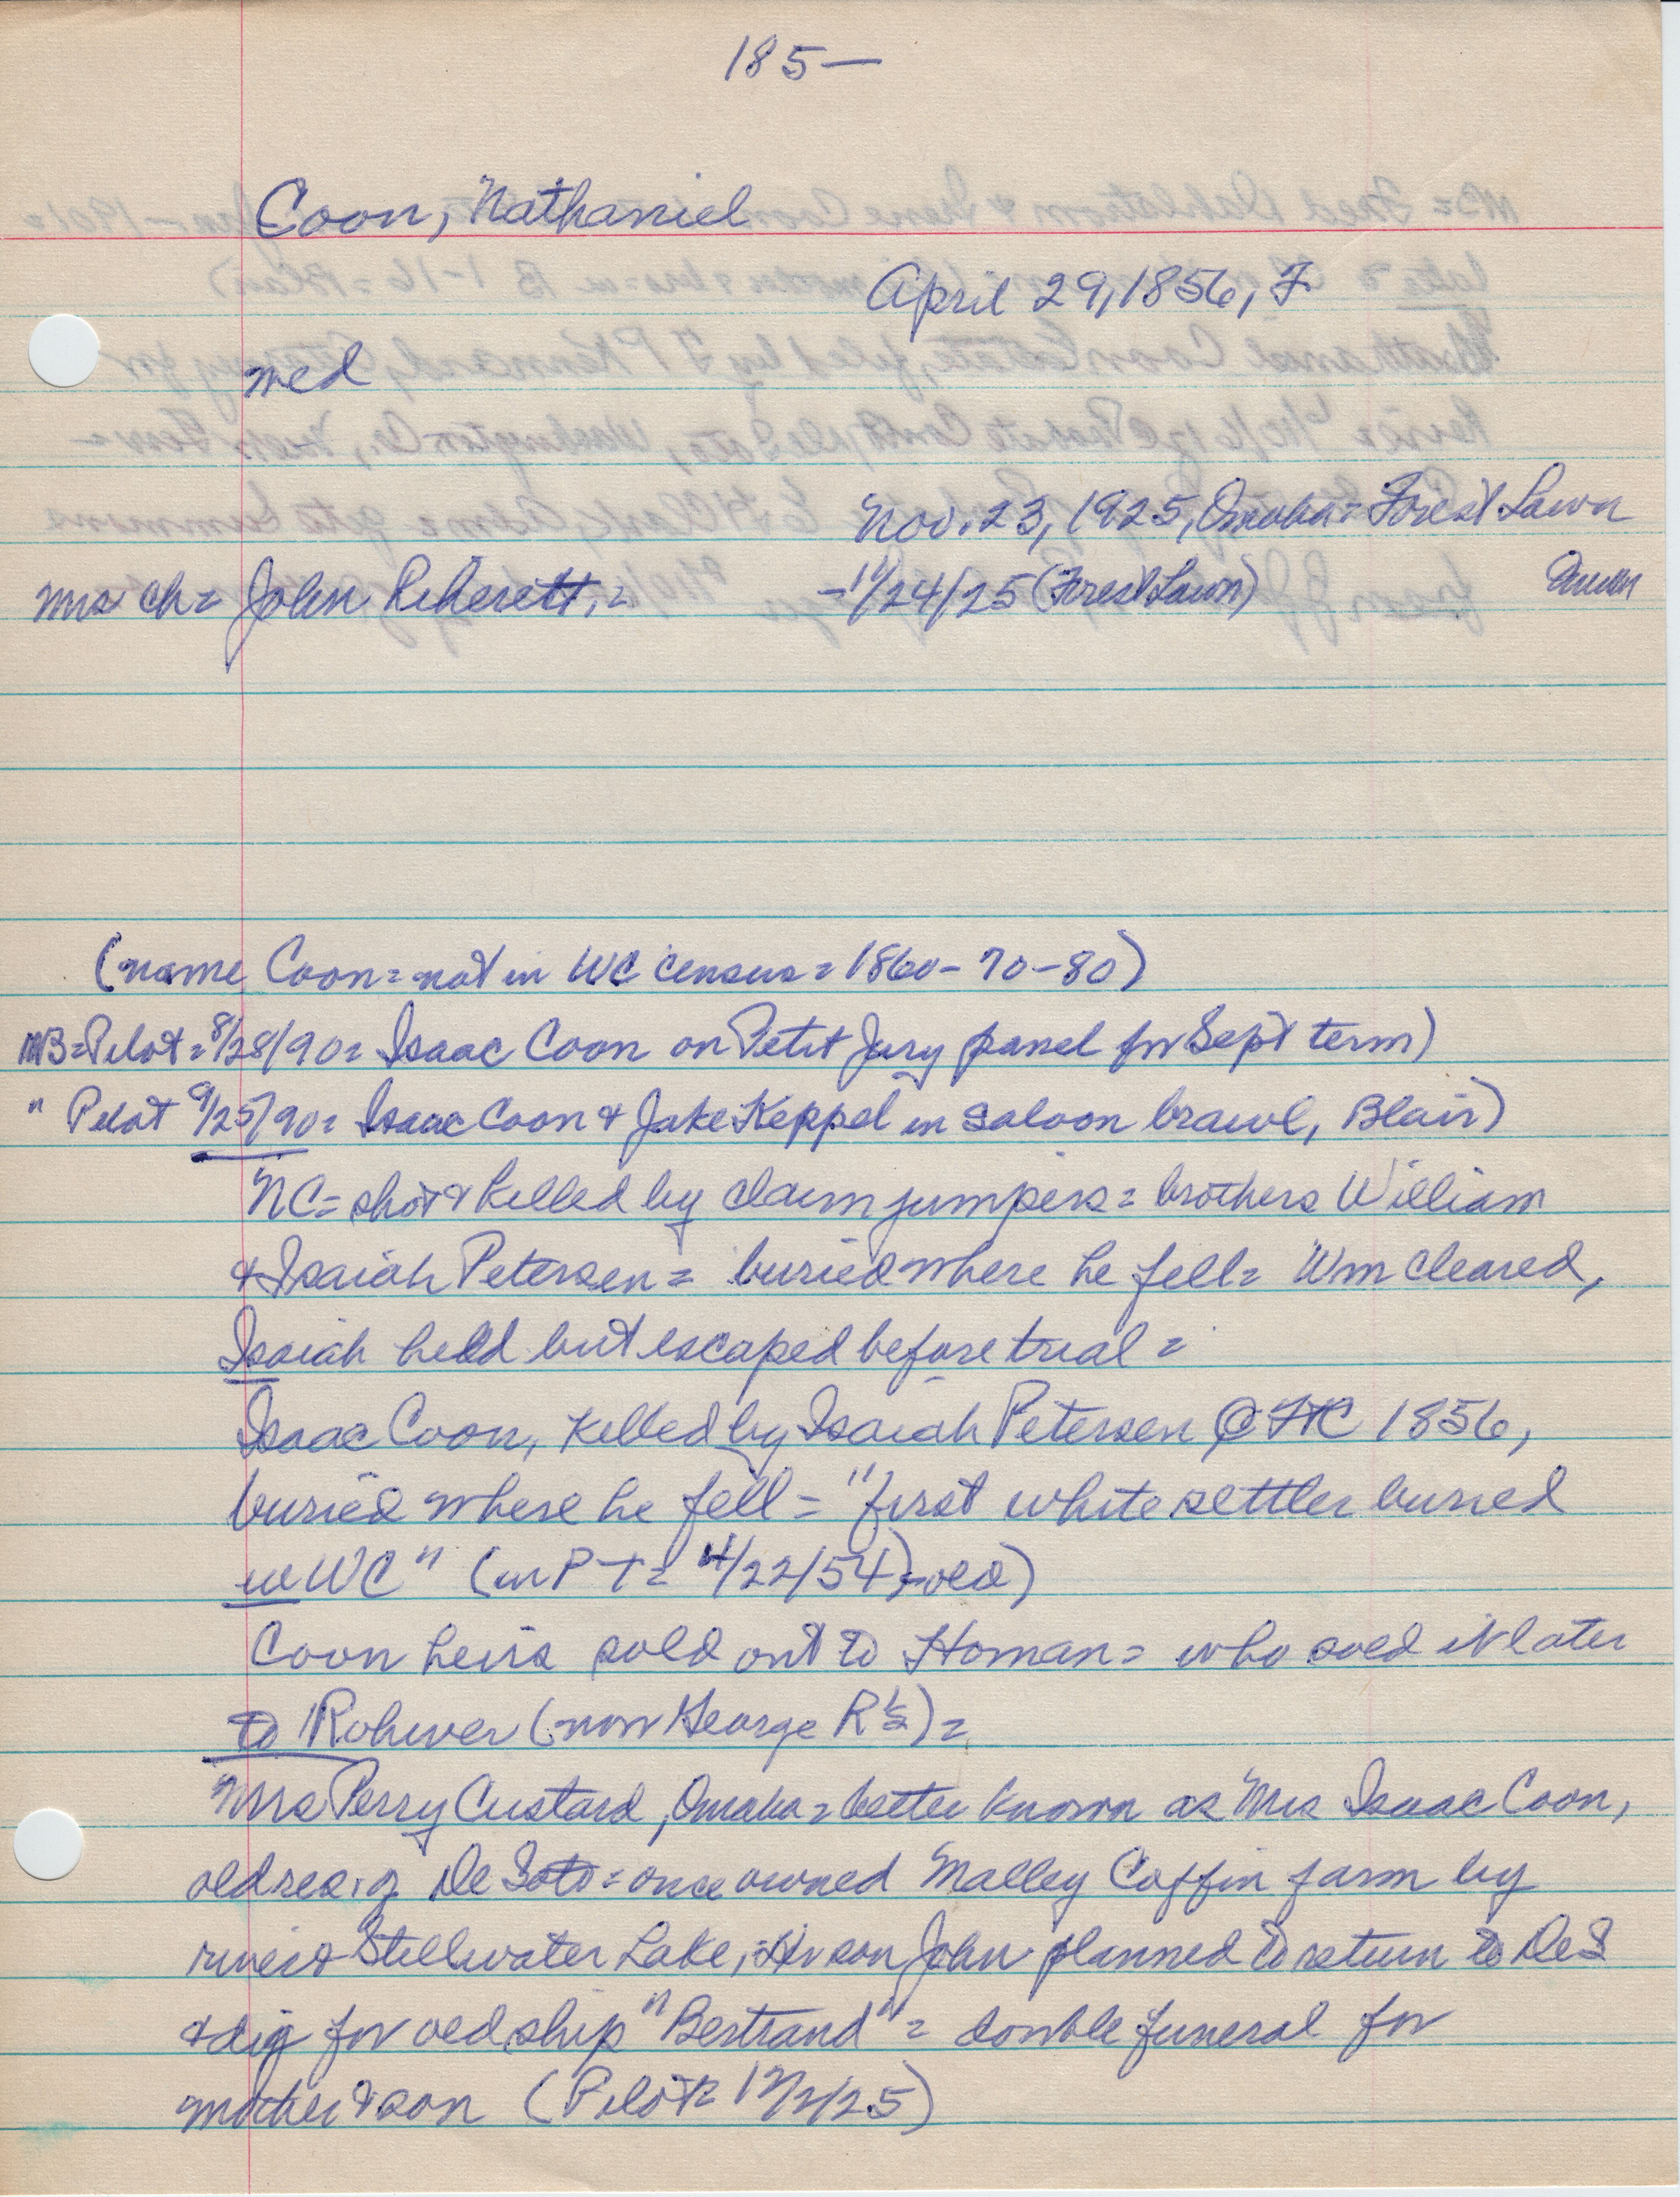 185—
Coon, Nathaniel
April 29, 1856, F
med
Nov. 23, 1925, Omaha = Forest Lawn
Mrs ch = John = - 11/24/25 (Forest Lawn)
(name Coon = not in WC census = 1860-70-80)
MB = Pilot = 8/28/90 = Isaac Coon on Petit Jury panel for Sept term)
" Pilot 9/25/90 = Isaac Coon & Jake Keppel in saloon brawl, Blair)
NC = shot & killed by claim jumpers = brothers William
& Isaiah Petersen = buried where he fell = Wm cleared,
Isaiah held but escaped before trial =
Isaac Coon, killed by Isaiah Petersen @ FTC 1856,
buried where he fell = "first white settler buried
in WC" (in PT = 4/22/54)
Coon heirs sold out to Homan = who sold it later
to Rohwer (now George R ½) =
Mrs Perry Custard, Omaha = better known as Mrs Isaac Coon,
old res. of De Soto = once owned Malley Coffin farm by
river & Stillwater Lake, son John planned to return to DeS
& dig for old ship "Bertrand" = double funeral for
mother & son (Pilot = 12/2/25)